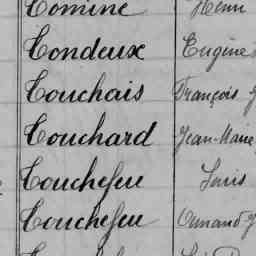 Tomine Henri
Tondeux Eugène
Touchais François J
Touchard Jean-Marie
Touchefeu Louis
Touchefeu Armand J